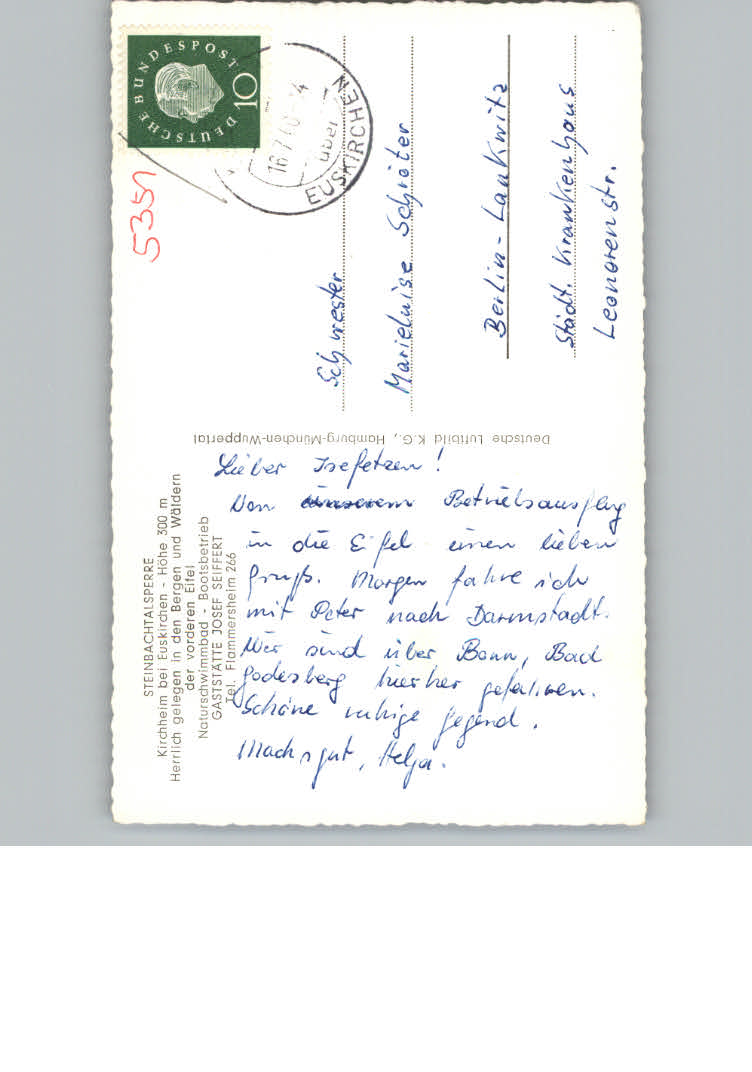 STEINBACHTALSPERRE
Kirchheim bei Euskirchen - Höhe 300 m
Herrlich gelegen in den Bergen und Wäldern
der vorderen Eifel
Naturschwimmbad - Bootsbetrieb
GASTSTÄTTE JOSEF SEIFFERT
Tel. Flammersheim 266
Lieber
Von unserem Betriebsausflug
in die Eifel einen lieben
Gruß. Morgen fahre ich
mit Peter nach Darmstadt.
Wir sind über Bonn, Bad
Godesberg hierher gefahren.
Schöne ruhige Gegend.
Machs gut, Helga.
Deutsche Luftbild K.G., Hamburg-München-Wuppertal
DEUTSCHE BUNDESPOST
10
16.7.60
über
EUSKIRCHEN
5351
Schwester
Marieluise Schröter
Berlin-Lankwitz
Städt. Krankenhaus
Leonorenstr.